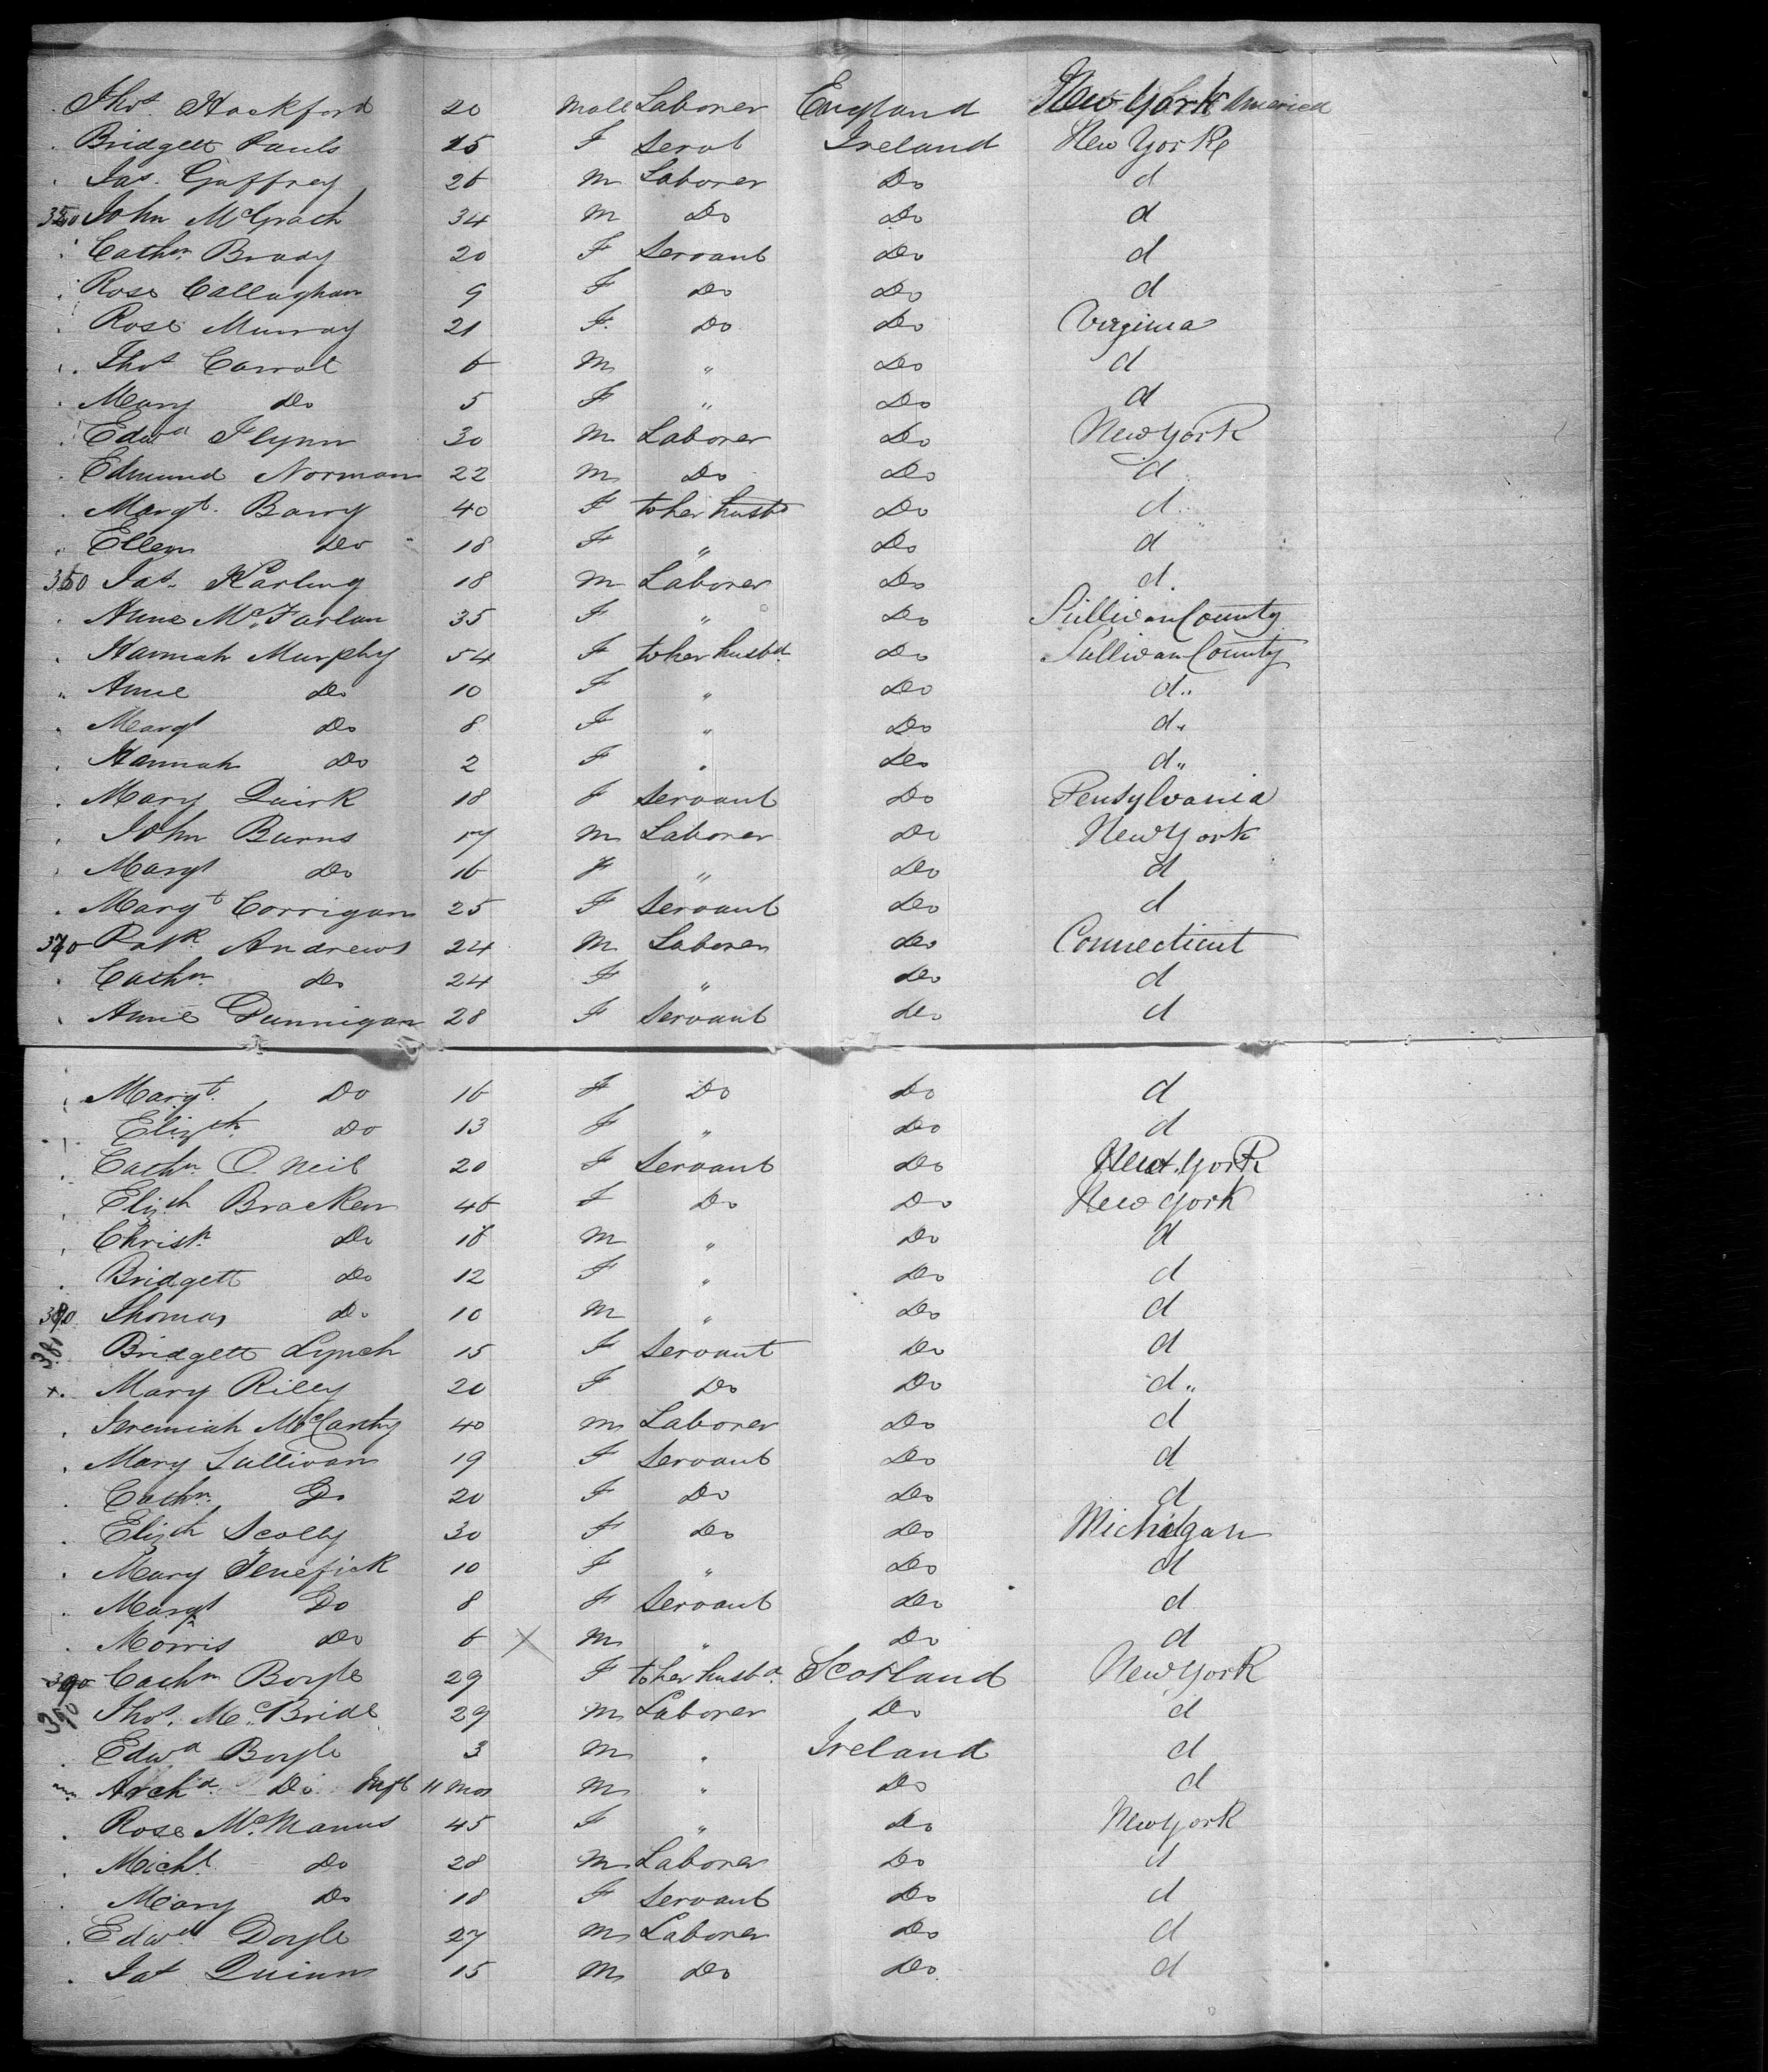 Thos. Hackford 20 Male Laborer England New York America
Bridgett Pauls 25 F Servt Ireland New York
Jas. Gaffrey 26 m Laborer Do d
350 John McGrath 34 m Do Do d
Cathn. Brady 20 F Servant Do d
Rose Callaghan 9 F Do Do d
Rose Murray 21 F. Do Do Virginia
Thos Carrol 6 m " Do d
Mary Do 5 F " Do d
Edwd Flynn 30 m Laborer Do New York
Edmund Norman 22 m Do Do d
Margt. Barry 40 F to her husbd Do d
Ellen Do 18 F " Do d
360 Jas. Karling 18 m Laborer Do d.
Anne McFarlan 35 F " Do Sullivan County
Hannah Murphy 54 F to her husbd. Do Sullivan County
Anne Do 10 F " Do d"
Margt Do 8 F " Do d"
Hannah Do 2 F " Do d"
Mary Quirk 18 F Servant Do Pensylvania
John Burns 17 m Laborer Do New York
Margt Do 16 F " Do d
Margt Corrigan 25 F Servant Do d
370 Patk Andrews 24 m Laborer do Connecticut
Cathn. do 24 F " do d
Anne Dunnigan 28 F Servant do d
Margt. Do 16 F Do Do d
Elizth. Do 13 F " Do d
Cathn. O. Neil 20 F Servant Do New York
Elizth Bracken 46 F Do Do New York
Christr. Do 16 m " Do d
Bridgett Do 12 F " Do d
380 Thomas Do 10 m " Do d
381 Bridgett Lynch 15 F Servant Do d
x. Mary Riley 20 F Do Do d"
Jeremiah McCarthy 40 m Laborer Do d
Mary Sullivan 19 F Servant Do d
Cathn. Do 20 F Do Do d
Elizth Scolly 30 F Do Do Michigan
Mary Fenefick 10 F " Do d
Margt Do 8 F Servant Do d
Morris Do 6 X m " Do d
390 Cathn Boyle 29 F to her husbd. Scotland New York
390 Thos. McBride 29 m Laborer Do d
Edwd Boyle 3 m " Ireland d
Archd. Do. Inft 11 mos m " Do d
Rose McManus 45 F " Do New York
Michl. Do 28 m Laborer Do d
Mary Do 18 F Servant Do d
Edwd Doyle 27 m Laborer Do d
Jas Quinn 15 m Do Do d